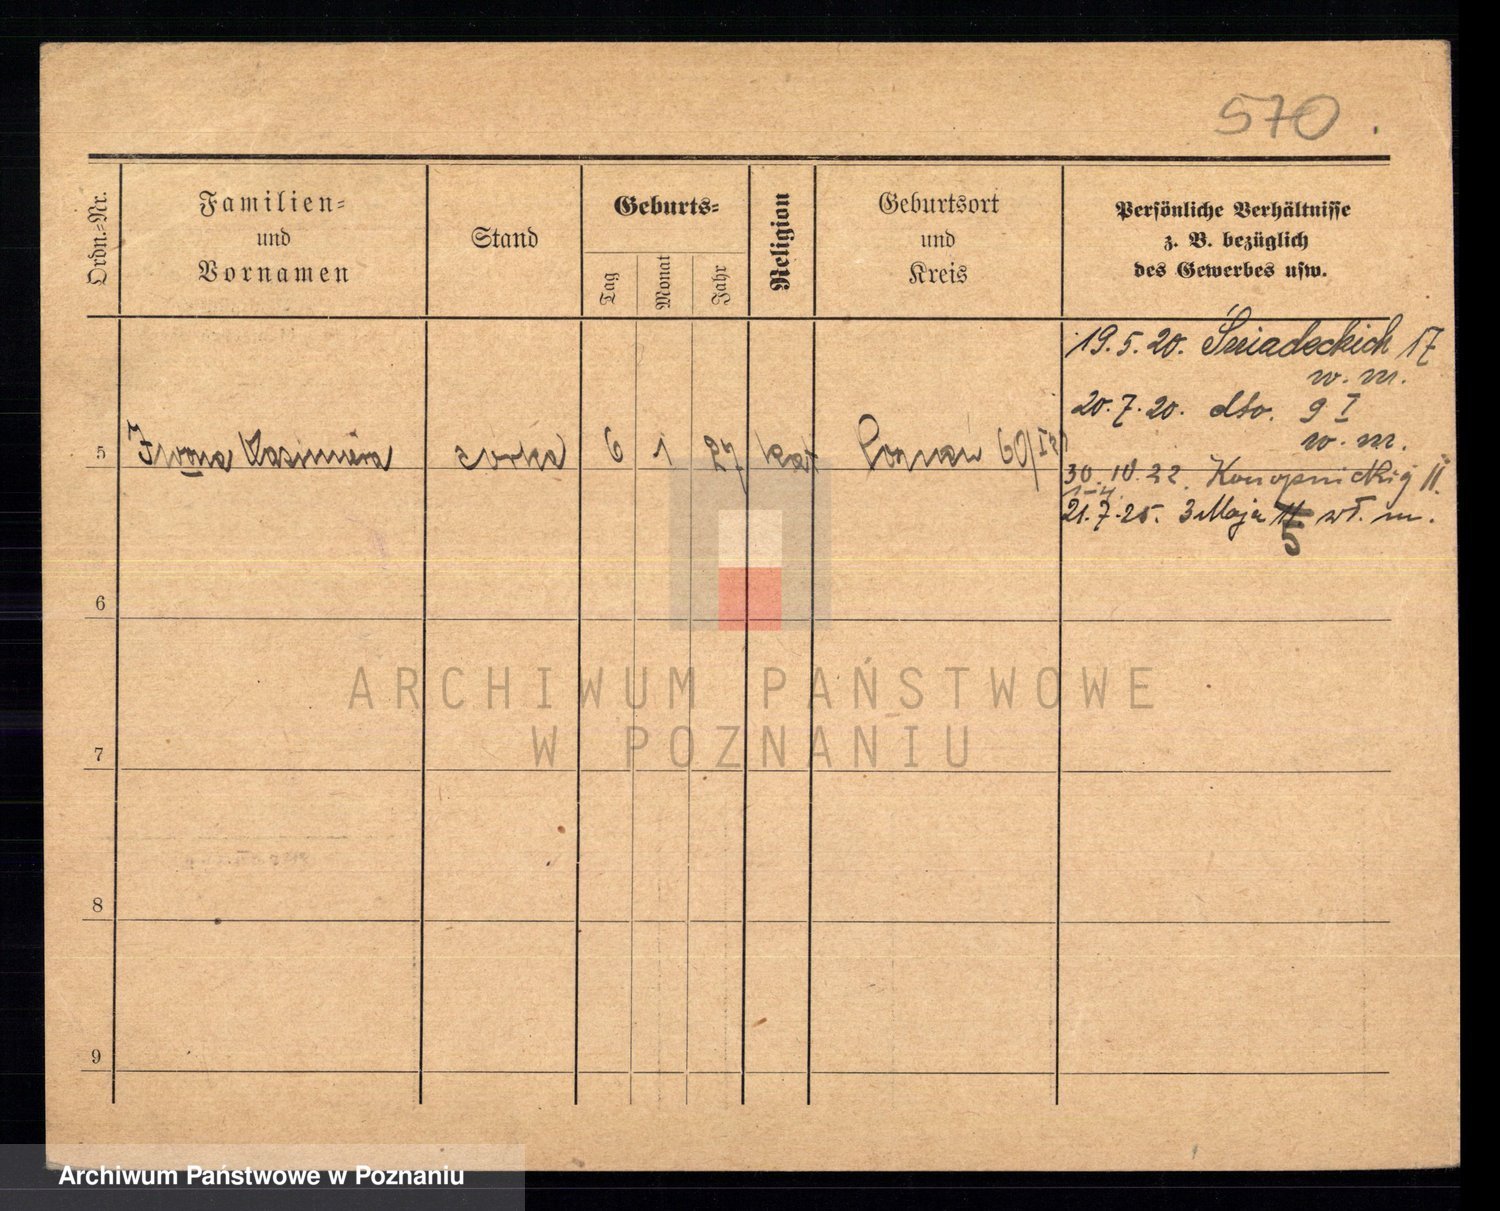 570.
Ordn.-Nr.
Familien-
und
Vornamen
Stand
Geburts-
Tag
Monat
Jahr
Religion
Geburtsort
und
Kreis
Persönliche Verhältnisse
z. B. bezüglich
des Gewerbes usw.
19.5.20. Śniadeckich 17
w. m.
20.7.20. dto. 9 I
w. m.
5 Iwona Kasimiera córka 6 1 27 kat Poznań 60/
30.10.22. Konopnickiej 11.
21.7.25. 3 Maja 11 wł. m.
5
6
7
8
9
ARCHIWUM PAŃSTWOWE
W POZNANIU
Archiwum Państwowe w Poznaniu